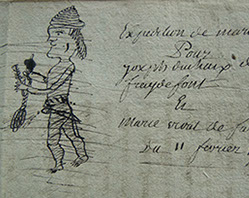 Expedition de mari
Pour
joseph duchaux d
fraydefont
Et
Marie vivat de fa
Du 11 fevrier